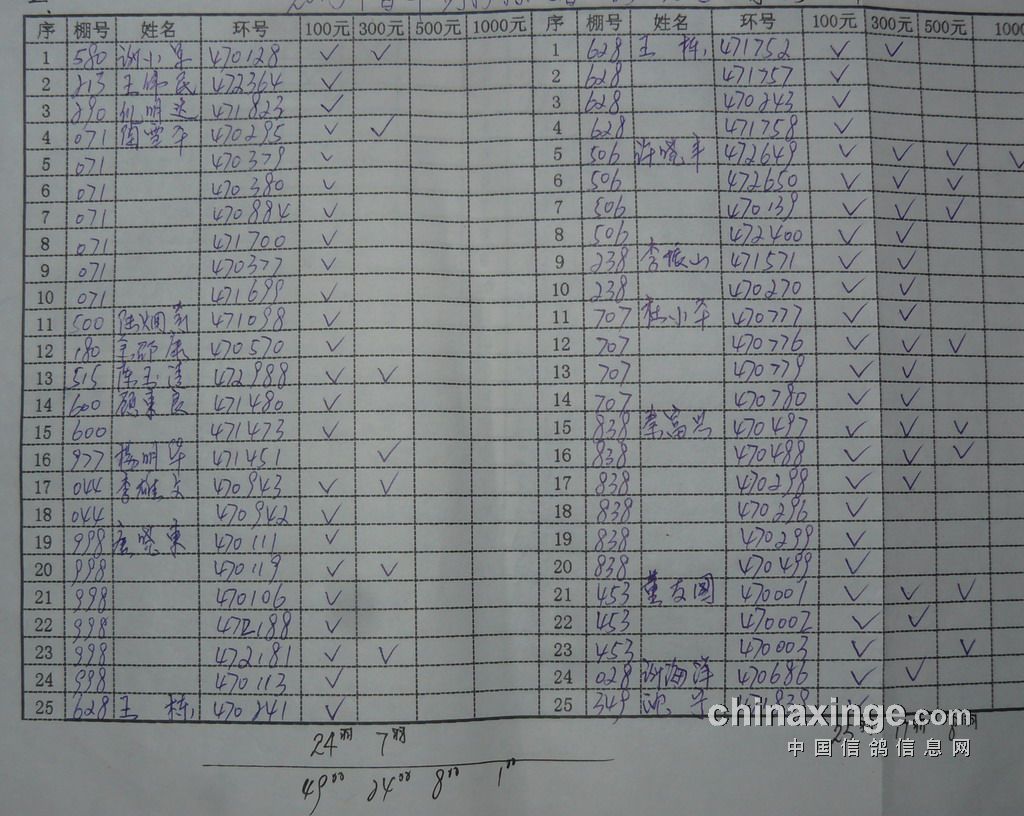 序 棚号 姓名 环号 100元 300元 500元 1000元 序 棚号 姓名 环号 100元 300元 500元 1000
1 580 谢小军 470128 ✓ ✓
2 213 王伟民 472364 ✓
3 290 倪明 471823 ✓
4 071 陶雪平 470295 ✓ ✓
5 071 470379 ✓
6 071 470380 ✓
7 071 470884 ✓
8 071 471700 ✓
9 071 470377 ✓
10 071 471699 ✓
11 500 471098 ✓
12 180 470570 ✓
13 515 陈玉清 472988 ✓ ✓
14 600 顾东良 471480 ✓
15 600 471473 ✓
16 977 杨明华 471451 ✓
17 044 李雄文 470943 ✓ ✓
18 044 470942 ✓
19 998 唐晓东 470111 ✓
20 998 470119 ✓ ✓
21 998 470106 ✓
22 998 472188 ✓
23 998 472181 ✓ ✓
24 998 470113 ✓
25 628 王栋 470241 ✓
1 628 王栋 471752 ✓ ✓
2 628 471757 ✓
3 628 470243 ✓
4 628 471758 ✓
5 506 许晓丰 472649 ✓ ✓ ✓ ✓
6 506 472650 ✓ ✓ ✓
7 506 470139 ✓ ✓ ✓
8 506 472400 ✓ ✓
9 238 李振山 471571 ✓ ✓
10 238 470270 ✓ ✓
11 707 杜小平 470777 ✓ ✓
12 707 470776 ✓ ✓ ✓
13 707 470779 ✓ ✓
14 707 470780 ✓ ✓
15 838 李富兴 470497 ✓ ✓ ✓
16 838 470488 ✓ ✓ ✓
17 838 470298 ✓ ✓
18 838 470296 ✓
19 838 470299 ✓
20 838 470499 ✓
21 453 董友国 470001 ✓ ✓ ✓
22 453 470002 ✓ ✓
23 453 470003 ✓ ✓
24 028 谢海洋 470686 ✓ ✓
25 349 471839 ✓
24羽 7羽
25羽 17羽 8羽
49 24 8 1
chinaxinge.com
中国信鸽信息网